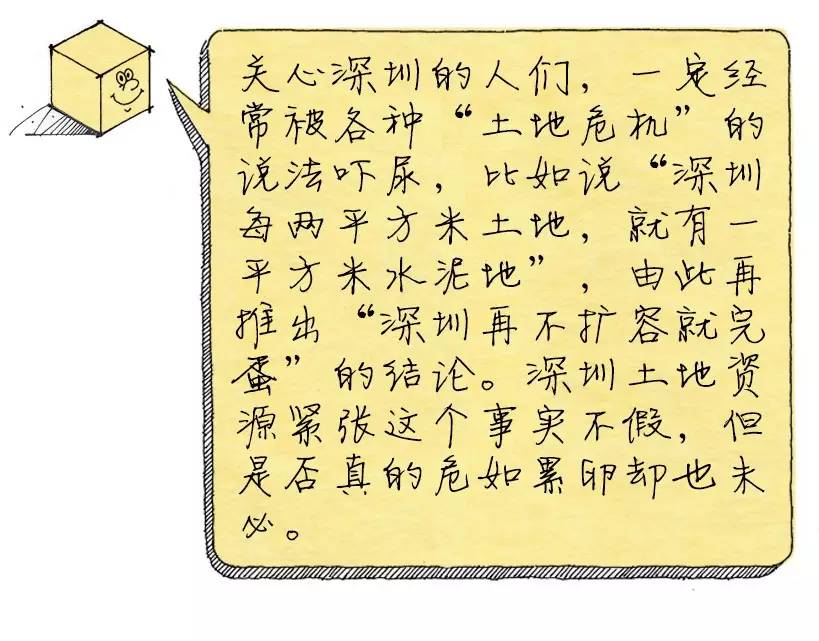 关心深圳的人们，一定经
常被各种“土地危机”的
说法吓尿，比如说“深圳
每两平方米土地，就有一
平方米水泥地”，由此再
推出“深圳再不扩容就完
蛋”的结论。深圳土地资
源紧张这个事实不假，但
是否真的危如累卵却也未
必。